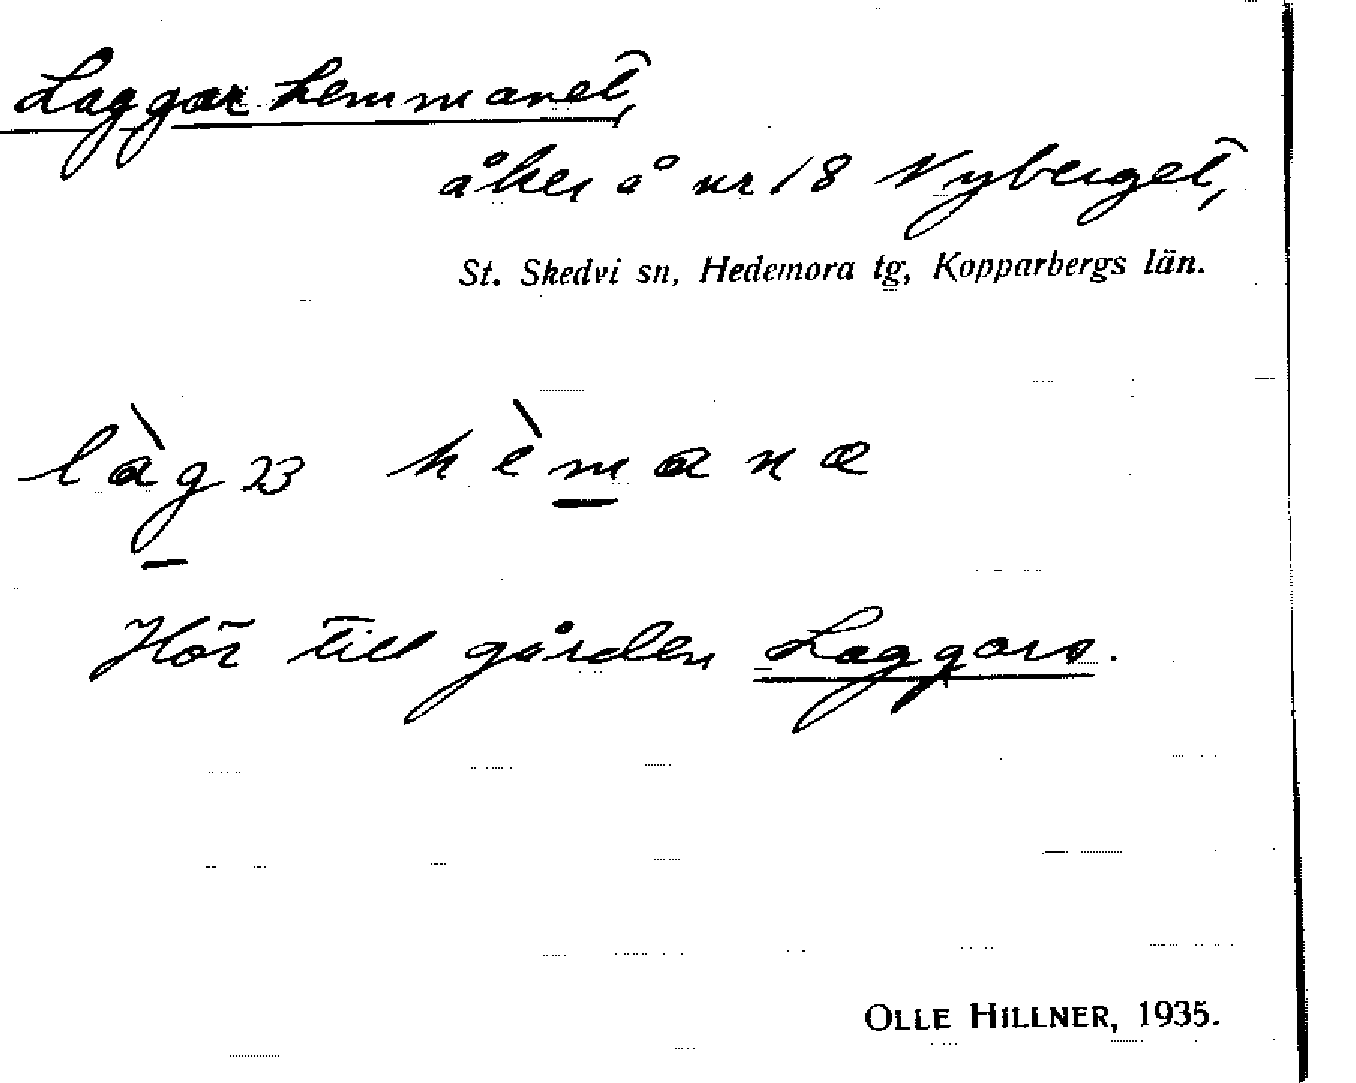 Laggarhemmanet,
åker å nr 18 Nyberget,
St. Skedvi sn, Hedemora tg, Kopparbergs län.
hèmana
Hör till gården Laggars.
OLLE HILLNER, 1935.